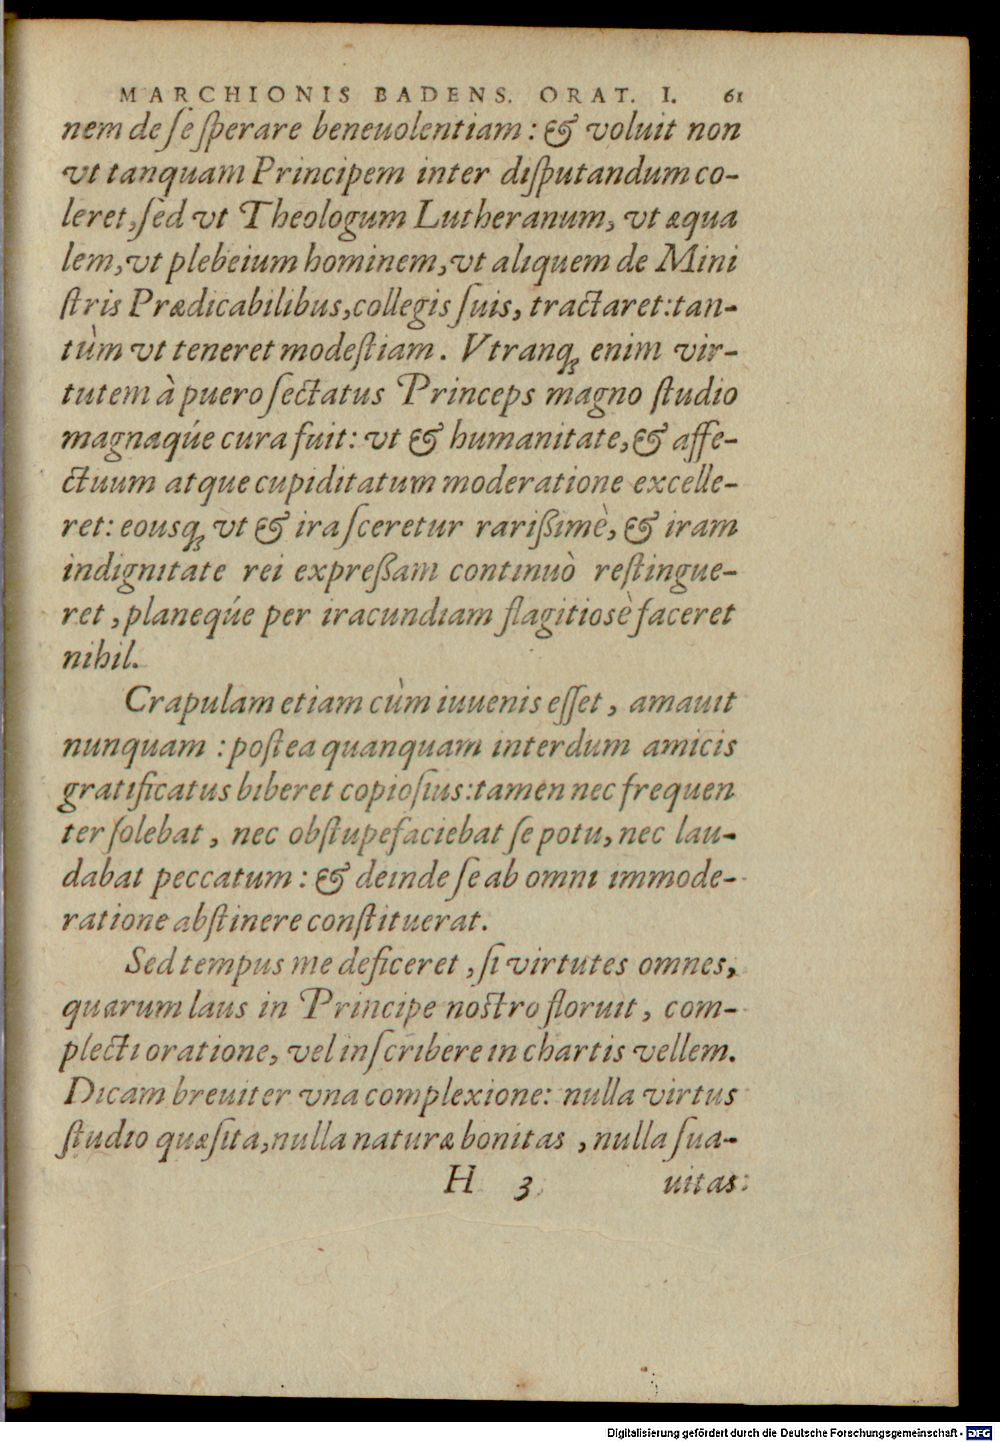 MARCHIONIS BADENS. ORAT. I. 61
nem de se sperare beneuolentiam: & voluit non
vt tanquam Principem inter disputandum co-
leret, sed vt Theologum Lutheranum, vt æqua
lem, vt plebeium hominem, vt aliquem de Mini
stris Prædicabilibus, collegis suis, tractaret: tan-
tùm vt teneret modestiam. Vtranq́; enim vir-
tutem à puero sectatus Princeps magno studio
magnaqúe cura fuit: vt & humanitate, & affe-
ctuum atque cupiditatum moderatione excelle-
ret: eousq́; vt & irasceretur rarißimè, & iram
indignitate rei expreßam continuò restingue-
ret, planeqúe per iracundiam flagitiosè faceret
nihil.
Crapulam etiam cùm iuuenis esset, amauit
nunquam: postea quanquam interdum amicis
gratificatus biberet copiosius: tamen nec frequen
ter solebat, nec obstupefaciebat se potu, nec lau-
dabat peccatum: & deinde se ab omni immode-
ratione abstinere constituerat.
Sed tempus me deficeret, si virtutes omnes,
quarum laus in Principe nostro floruit, com-
plecti oratione, vel inscribere in chartis vellem.
Dicam breuiter vna complexione: nulla virtus
studio quæsita, nulla naturæ bonitas, nulla sua-
H 3 uitas
Digitalisierung gefördert durch die Deutsche Forschungsgemeinschaft - DFG